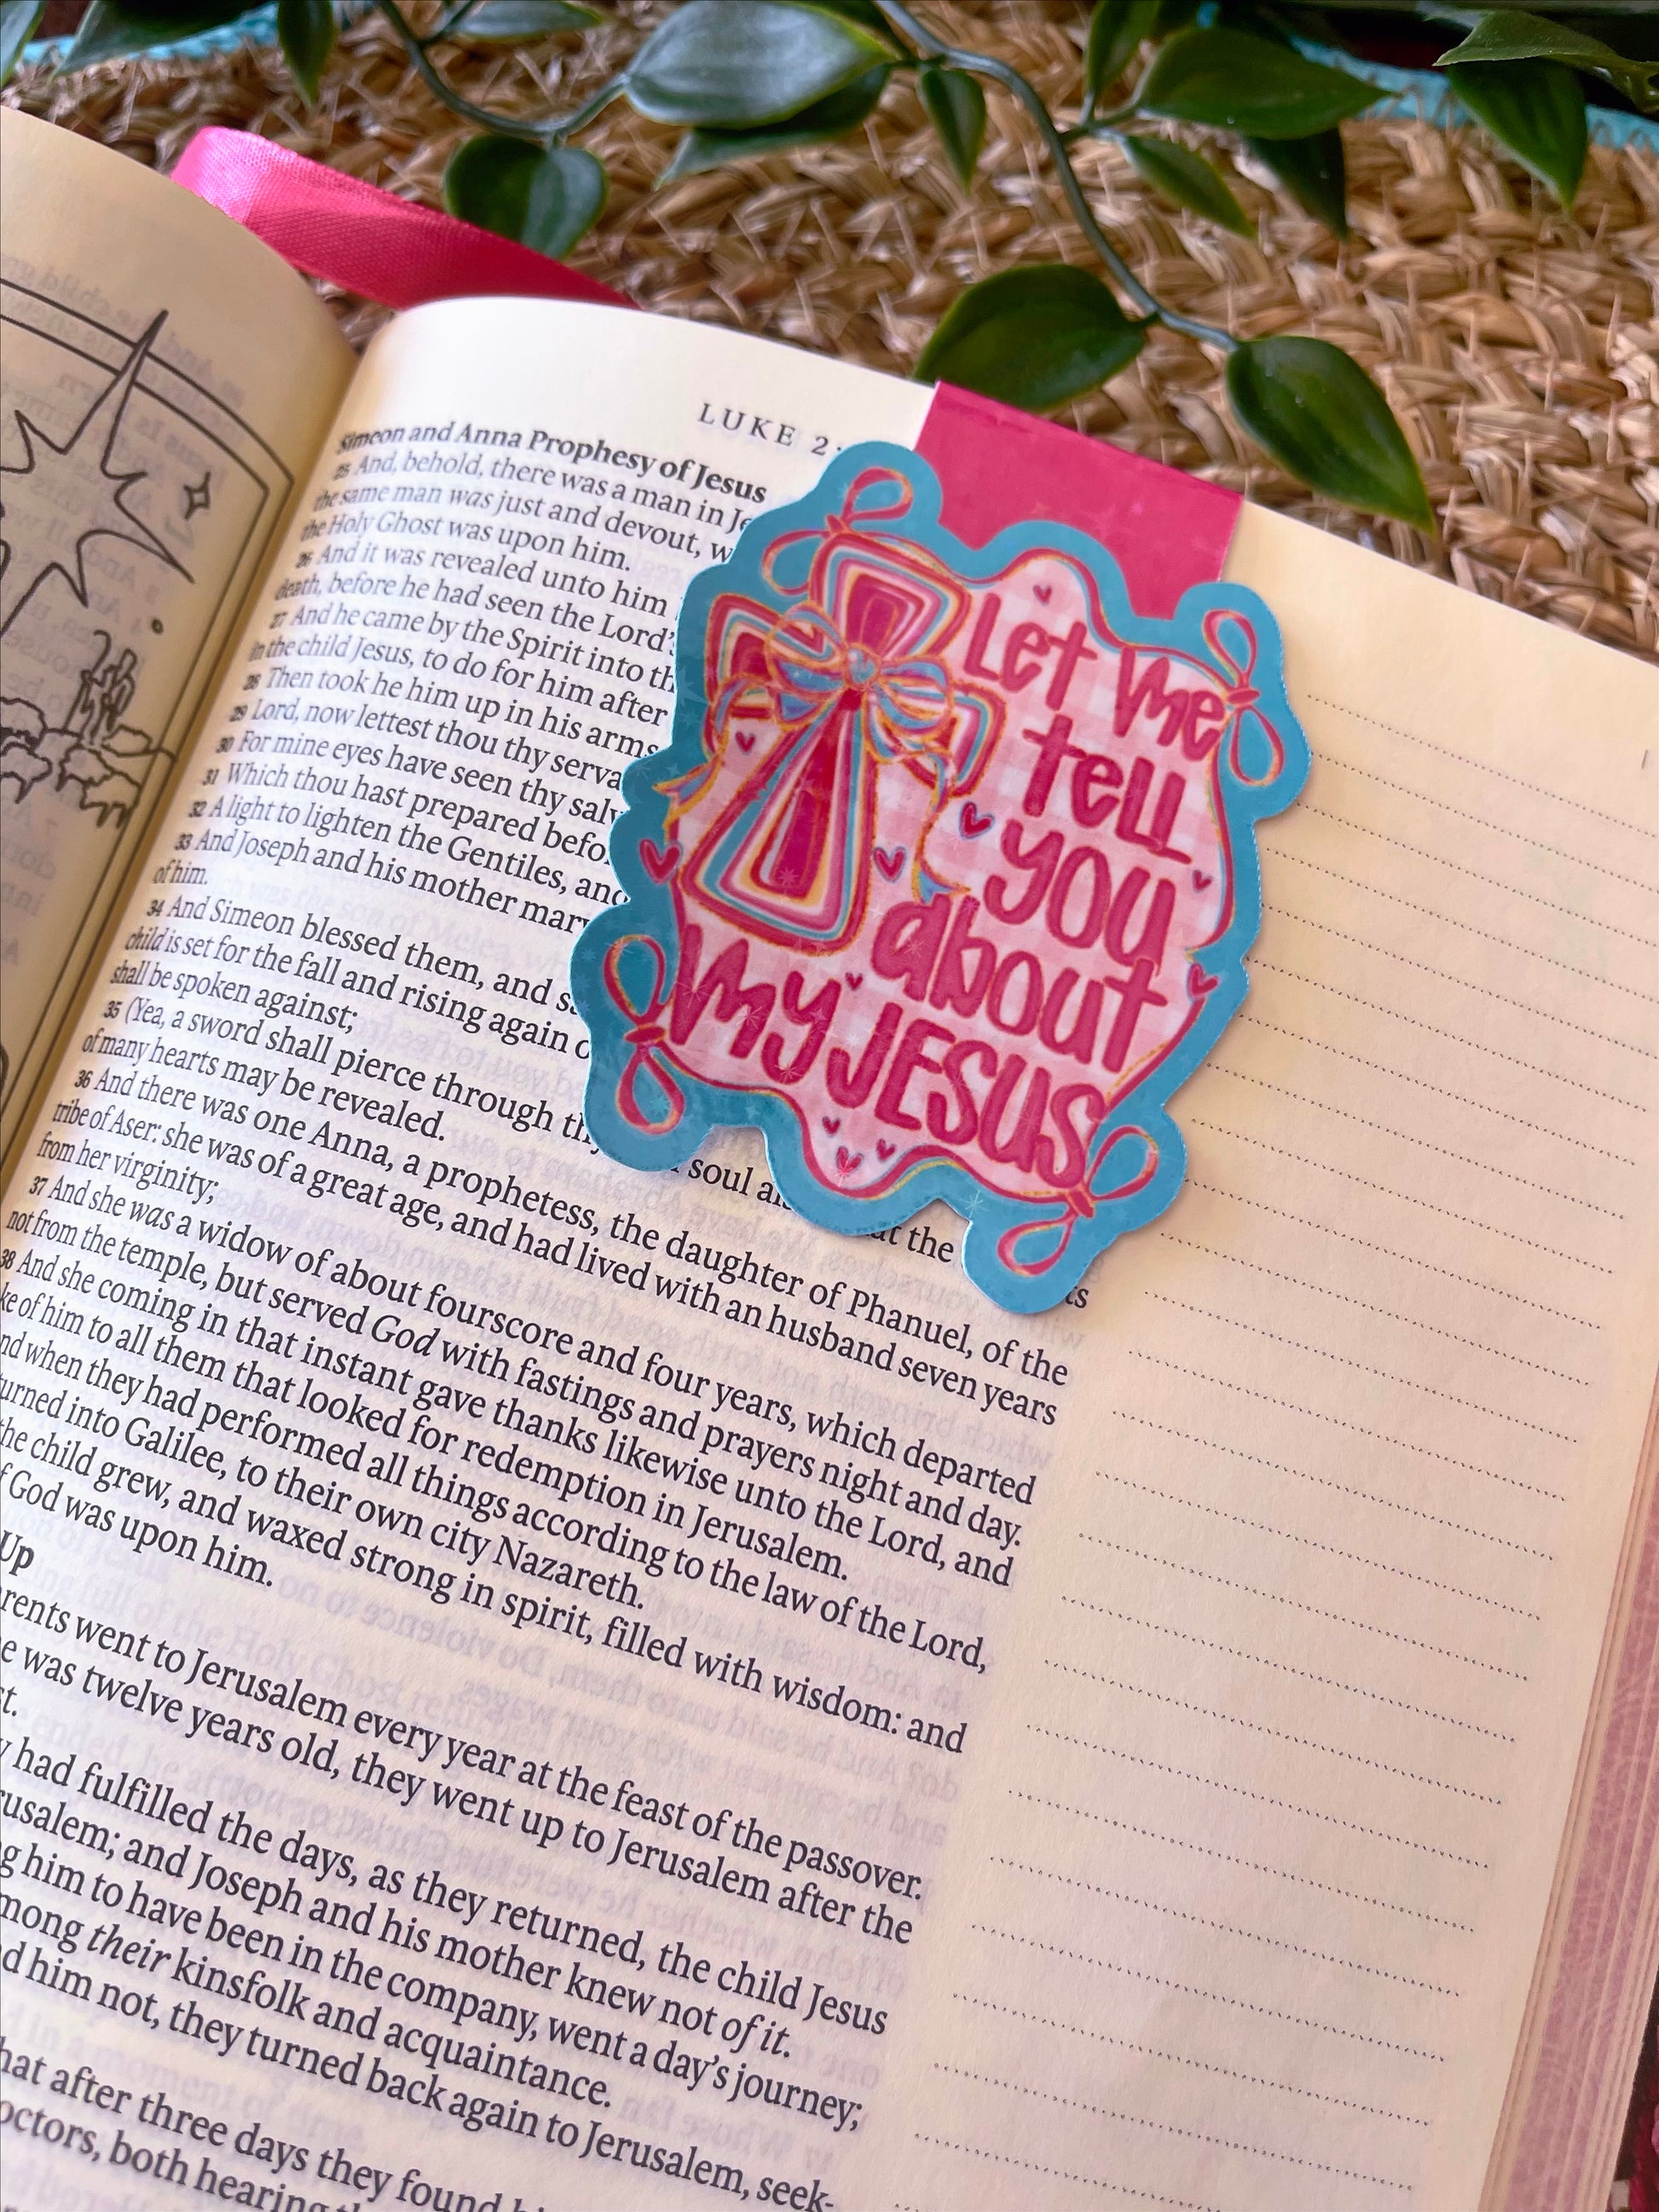 LUKE 2:
Simeon and Anna Prophesy of Jesus
25 And, behold, there was a man in Je
the same man was just and devout, w
the Holy Ghost was upon him.
26 And it was revealed unto him
death, before he had seen the Lord's
27 And he came by the Spirit into th
in the child Jesus, to do for him after
28 Then took he him up in his arms
29 Lord, now lettest thou thy serva
30 For mine eyes have seen thy salv
31 Which thou hast prepared befo
32 A light to lighten the Gentiles, and
33 And Joseph and his mother marv
of him.
34 And Simeon blessed them, and s
child is set for the fall and rising again o
shall be spoken against;
35 (Yea, a sword shall pierce through thy soul al at the
of many hearts may be revealed. ts
36 And there was one Anna, a prophetess, the daughter of Phanuel, of the
tribe of Aser: she was of a great age, and had lived with an husband seven years
from her virginity;
37 And she was a widow of about fourscore and four years, which departed
not from the temple, but served God with fastings and prayers night and day.
38 And she coming in that instant gave thanks likewise unto the Lord, and
ke of him to all them that looked for redemption in Jerusalem.
nd when they had performed all things according to the law of the Lord,
turned into Galilee, to their own city Nazareth.
the child grew, and waxed strong in spirit, filled with wisdom: and
f God was upon him.
Up
rents went to Jerusalem every year at the feast of the passover.
e was twelve years old, they went up to Jerusalem after the
st.
y had fulfilled the days, as they returned, the child Jesus
rusalem; and Joseph and his mother knew not of it.
g him to have been in the company, went a day's journey;
mong their kinsfolk and acquaintance.
d him not, they turned back again to Jerusalem, seek-
hat after three days they found hi
octors, both hearing th
Let me
tell
you
about
my JESUS